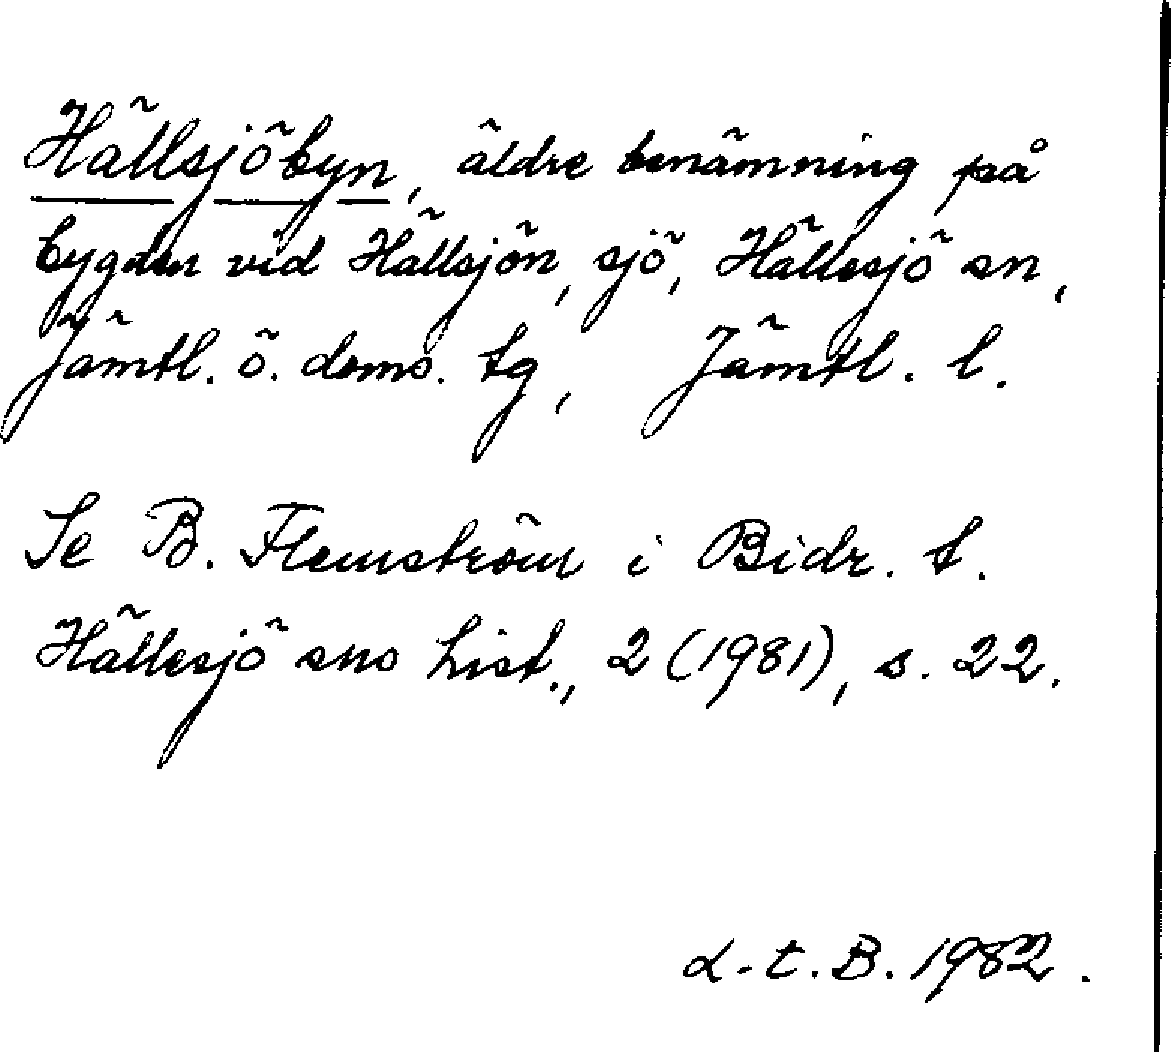 Hällsjöbyn, äldre benämning på
bygden vid Hällsjön, sjö, Hällesjö sn,
Jämtl. ö. doms. tg, Jämtl. l.
Se B. Flemström i Bidr. t.
Hällesjö sns hist., 2 (1981), s. 22.
L.t.B. 1982.